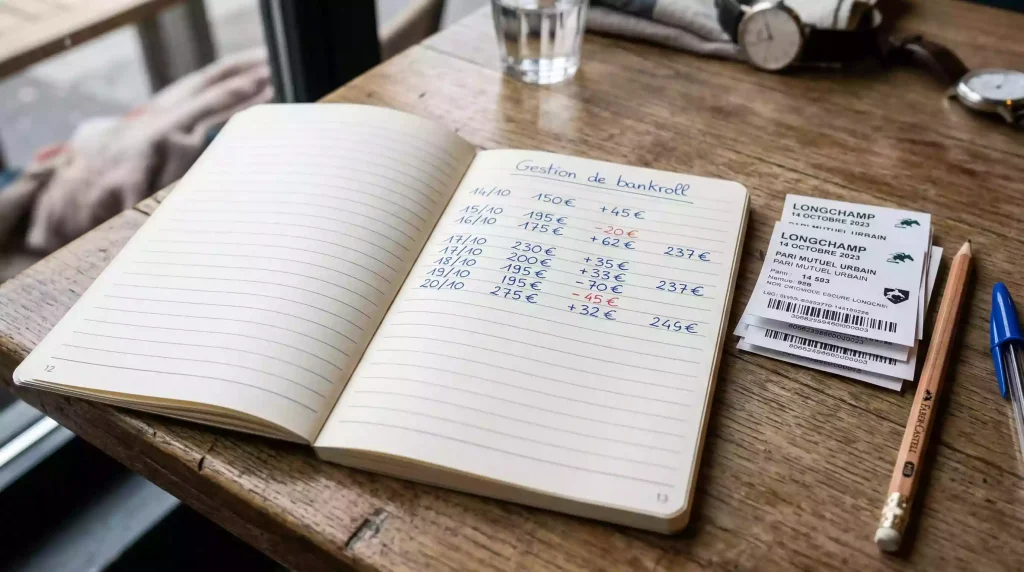 Gestion de bankroll
14/10 150€ +45€
15/10 195€ -20€
16/10 175€ +62€ 237€
17/10 230€ +35€
17/10 200€ +33€
18/10 195€ -70€ 237€
19/10 195€ -45€
20/10 275€ +32€ 249€
12
13
LONGCHAMP
14 OCTOBRE 2023
LONGCHAMP
14 OCTOBRE 2023
PARI MUTUEL URBAIN
PARI MUTUEL URBAIN
14 593
FABER-CASTELL